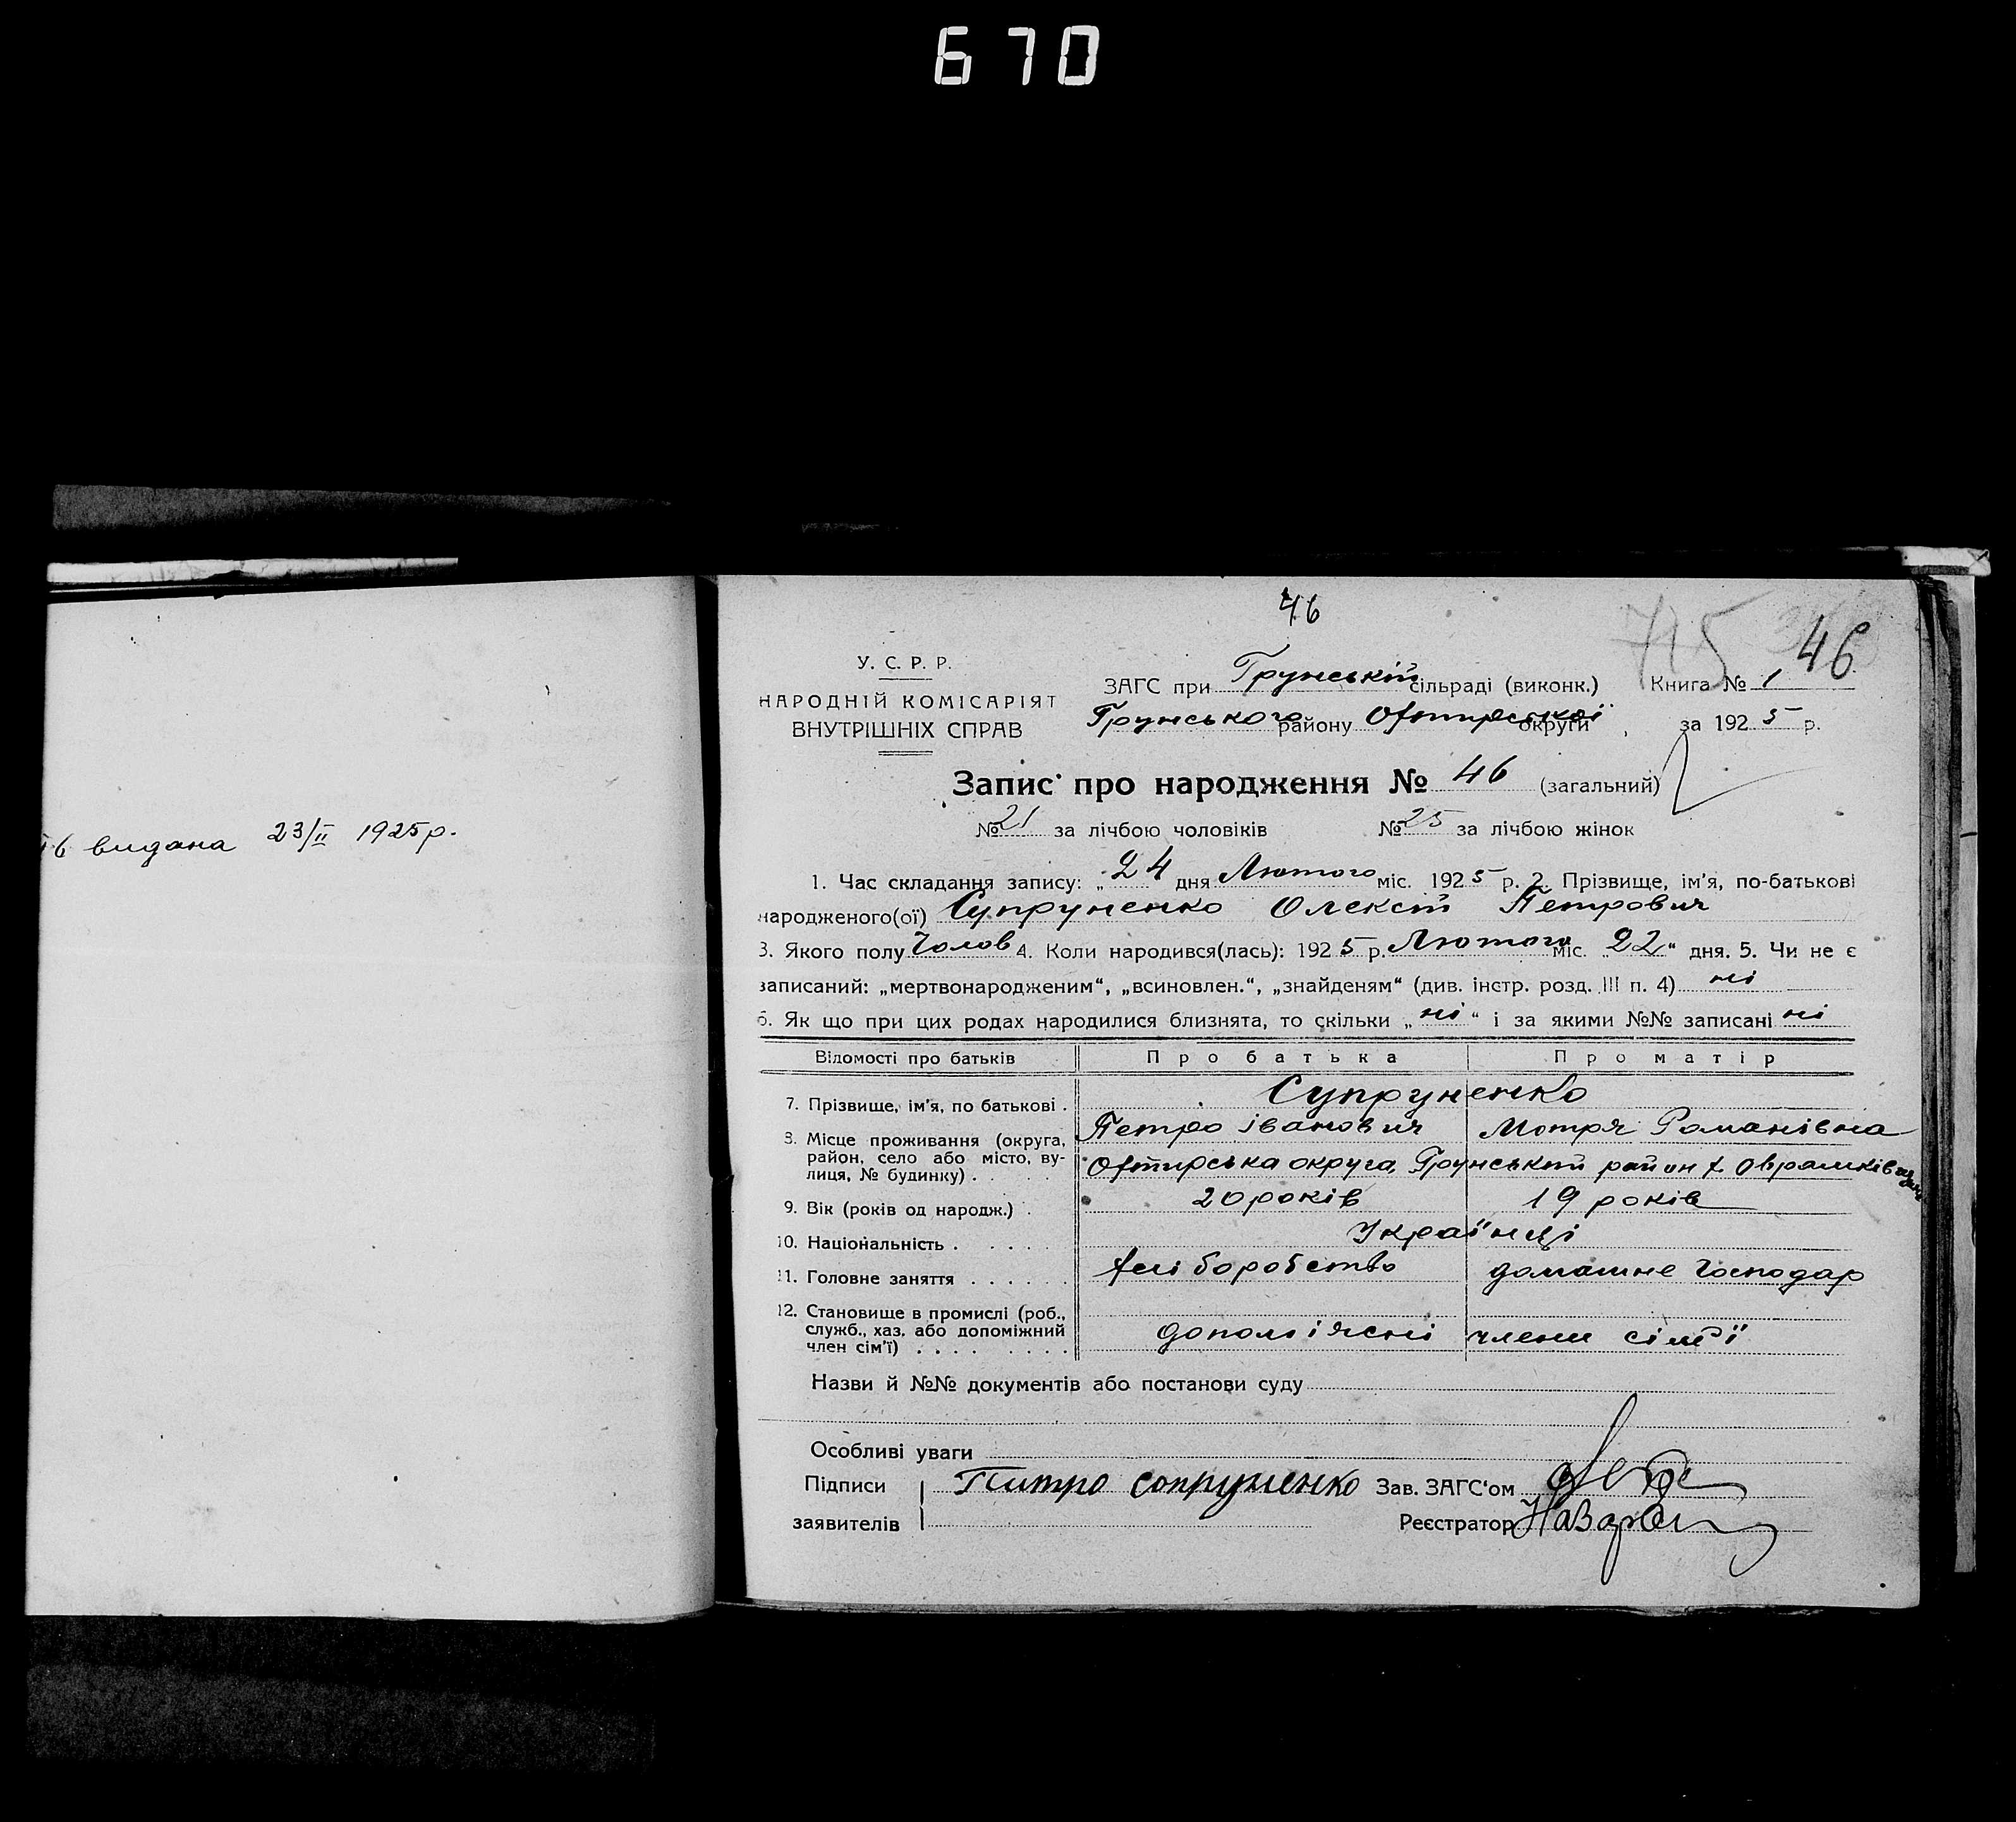 670
видана 23/II 1925 р.
46
715
46
У. С. Р. Р.
НАРОДНІЙ КОМІСАРІЯТ
ВНУТРІШНІХ СПРАВ
ЗАГС при Грунській сільраді (виконк.) Книга № 1
Грунського району Охтирської округи, за 1925 р.
Запис про народження № 46 (загальний)
№ 21 за лічбою чоловіків № 25 за лічбою жінок
1. Час складання запису: „24 дня Лютого міс. 1925 р. 2. Прізвище, ім'я, по-батькові
народженого(ої) Супруненко Олексій Петрович
3. Якого полу Чолов 4. Коли народився(лась): 1925 р. Лютого міс. „22“ дня. 5. Чи не є
записаний: „мертвонародженим“, „всиновлен.“, „знайденям“ (див. інстр. розд. III п. 4) ні
6. Як що при цих родах народилися близнята, то скільки „ні“ і за якими №№ записані ні
Відомості про батьків Про батька Про матір
Супруненко
7. Прізвище, ім'я, по батькові .
Петро Іванович Мотря Романівна
8. Місце проживання (округа,
район, село або місто, ву-
лиця, № будинку) . . . .
Охтирська округа, Грунський район х. Оврамківщина
9. Вік (років од народж.) . 20 років 19 років
10. Національність . . . . . Українці
11. Головне заняття . . . . . . хліборобство домашнє господар
12. Становище в промислі (роб.,
служб., хаз. або допоміжний
член сім'ї) . . . . . . . .
допоміжні члени сім'ї
Назви й №№ документів або постанови суду
Особливі уваги
Підписи Питро сопруненко Зав. ЗАГС'ом
заявителів Реєстратор